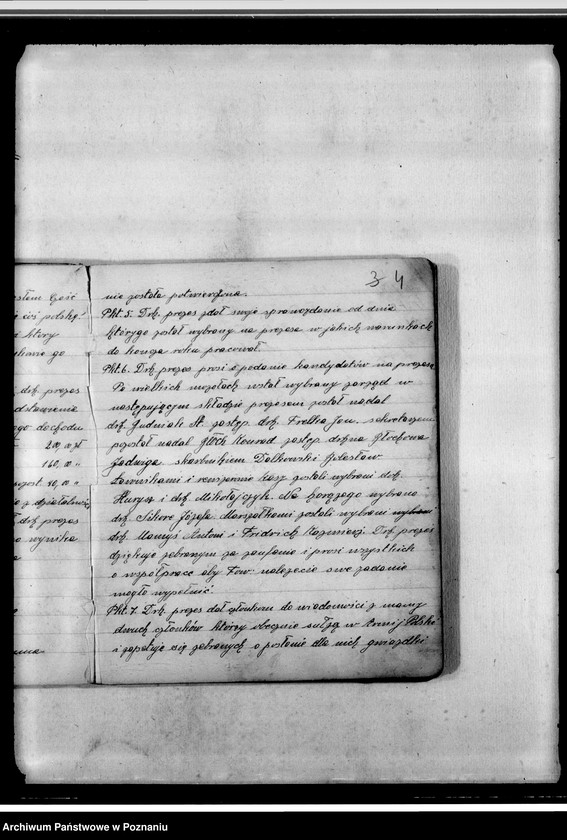 3 4
słem część
i który
drh. prezes
dochodu
200,00 zł
160,00 "
z działalności
drh. prezes
wynika
nie została potwierdzona.
Pkt. 5. Drh. prezes zdał swoje sprawozdanie od dnia
którego został wybrany na prezesa w jakich warunkach
do końca roku pracował.
Pkt. 6. Drh. prezes prosi o podanie kandydatów na prezesa
Po wielkich został wybrany zarząd w
następującym składzie prezesem został nadal
drh. Gudniak St. zastęp. drh. Frelka Jan. sekretarzem
pozostał nadal Gloch Konrad zastęp. drhna Glochowa
Jadwiga skarbnikiem Dalkowski Bolesław
Ławnikami i rewizorami kasy zostali wybrani drh.
i drh. Mikołajczyk. Na chorążego wybrano
drh. Sikorę Józefa. Marszałkami zostali wybrani wybrani
drh. Mamyś Antoni i Fridrich Kazimierz. Drh. prezes
dziękuje zebranym za zaufanie i prosi wszystkich
o współpracę aby Tow. należycie swe zadanie
mogło wypełnić.
Pkt. 7. Drh. prezes dał członkom do wiadomości z mamy
dwuch członków którzy obecnie służą w Armji Polski
i zapytuje się zebranych o posłanie dla nich gwiazdki
Archiwum Państwowe w Poznaniu